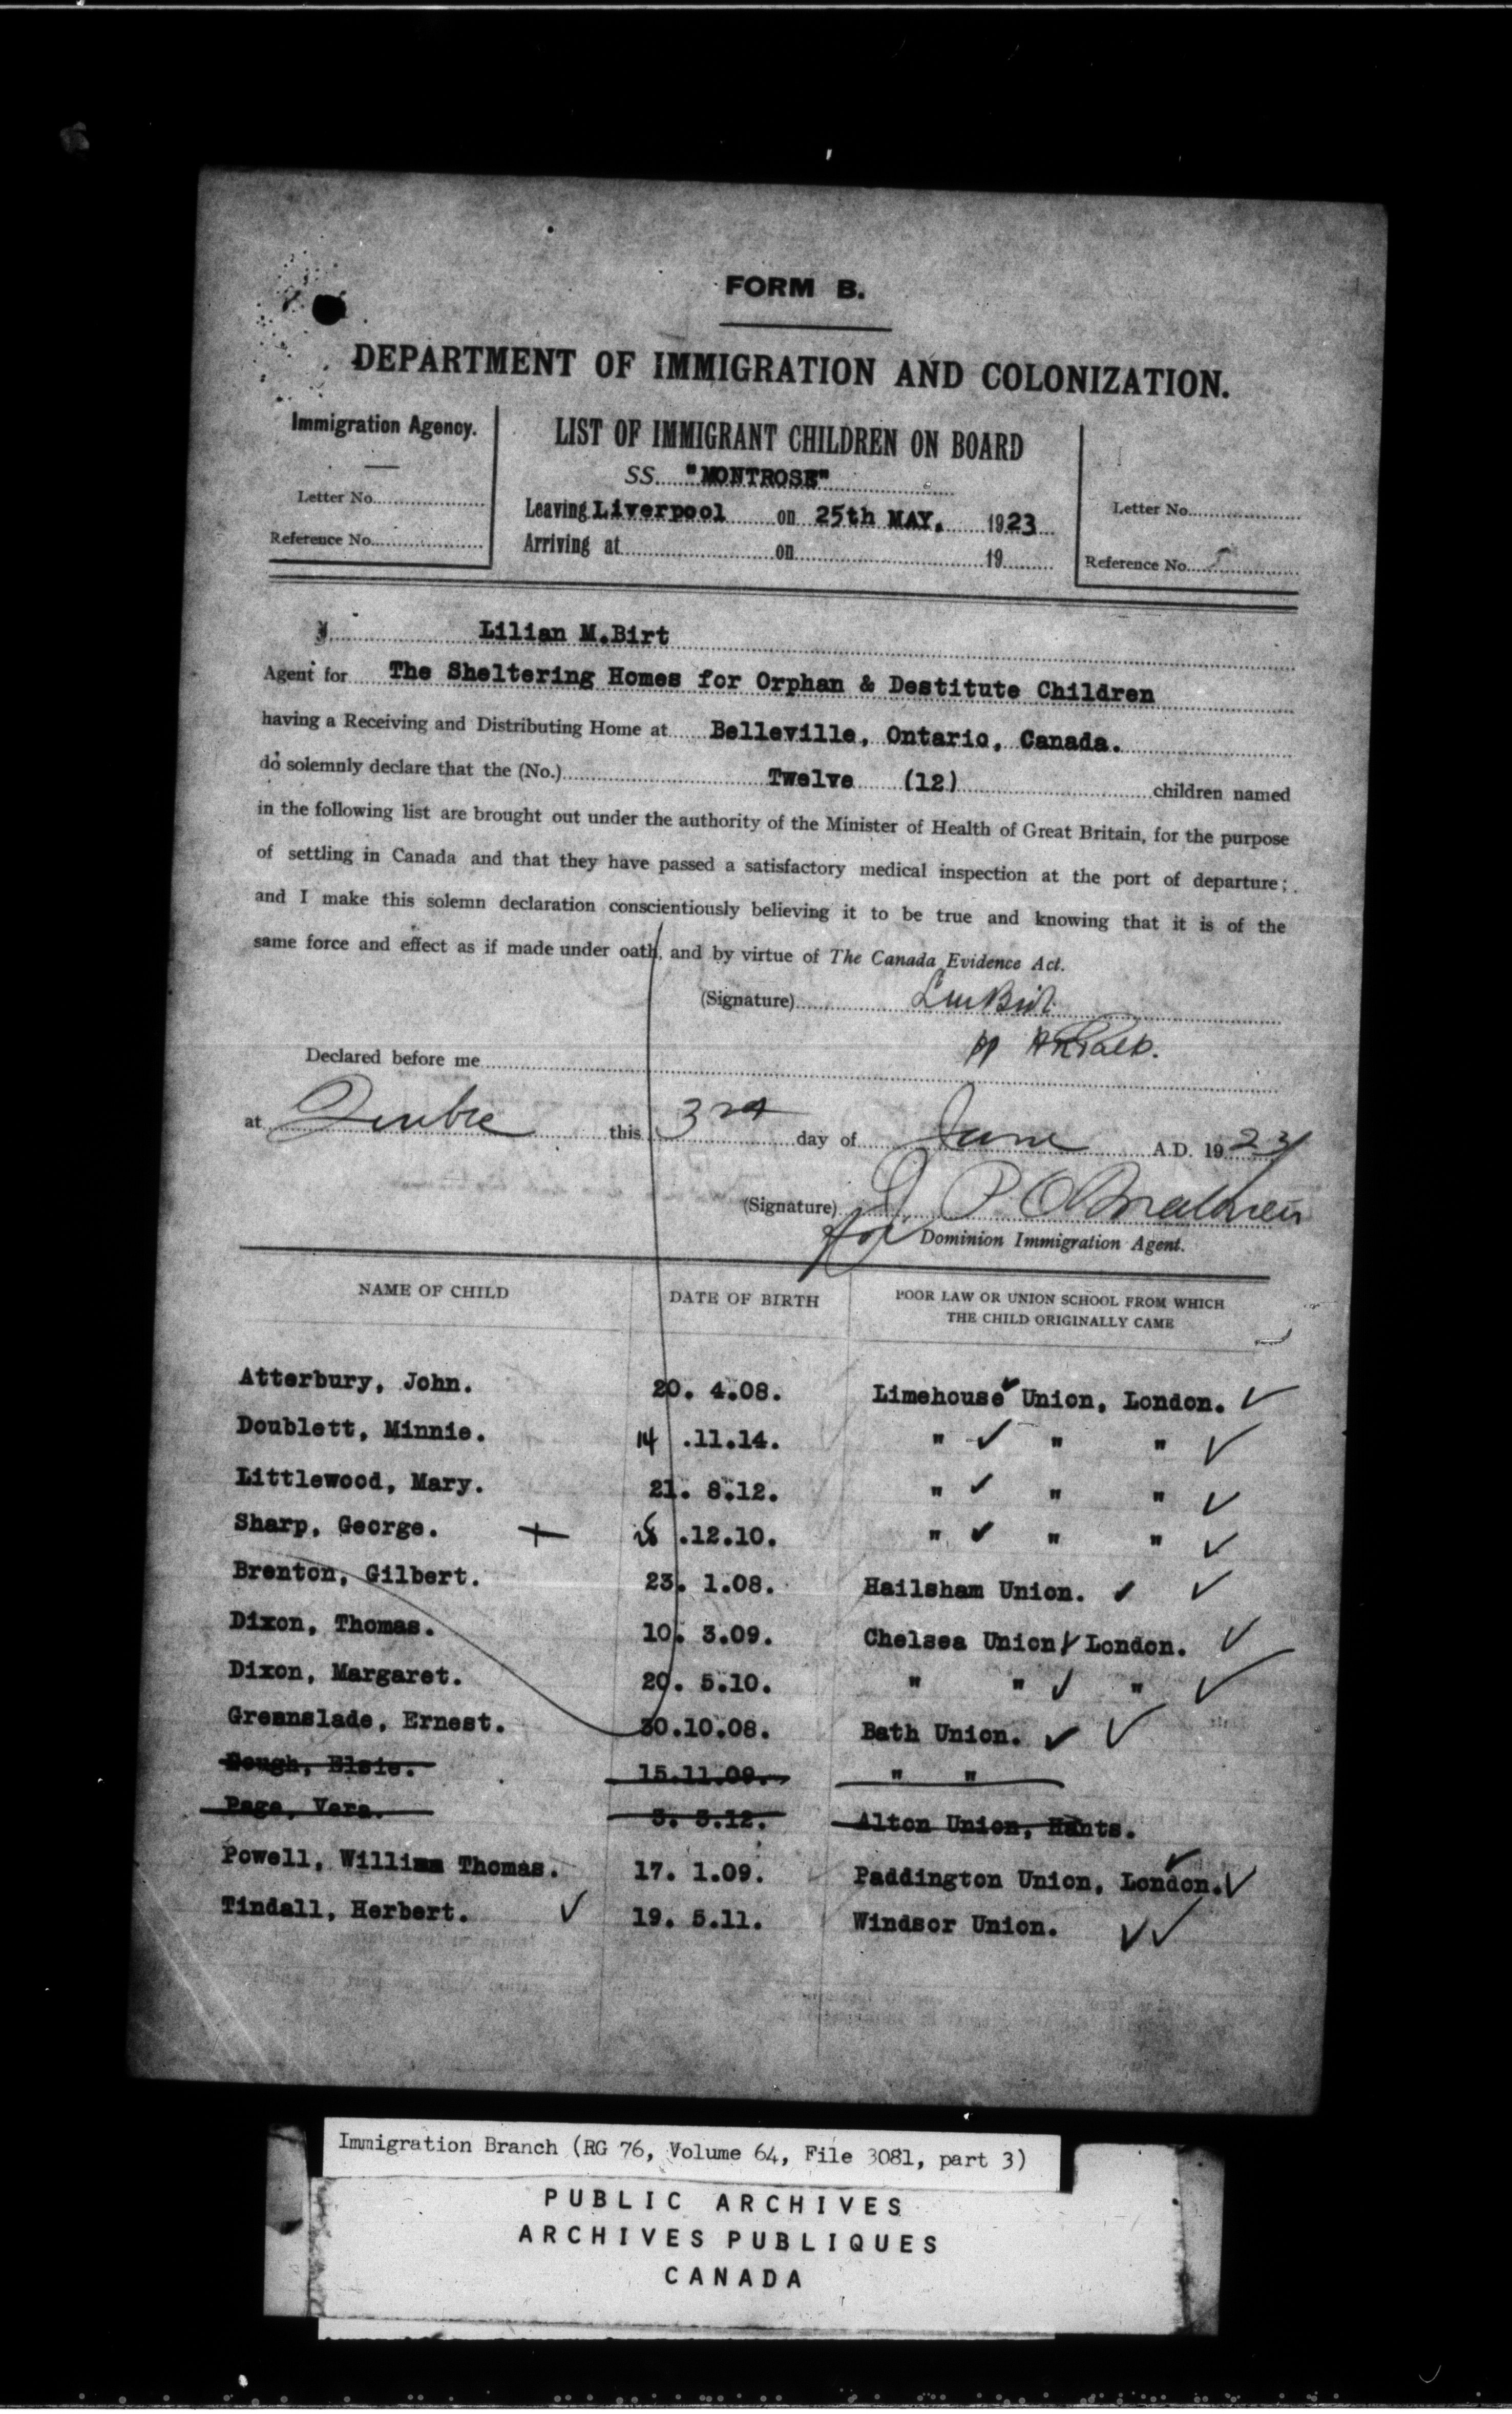 FORM B.
DEPARTMENT OF IMMIGRATION AND COLONIZATION.
Immigration Agency.
Letter No.
Reference No.
LIST OF IMMIGRANT CHILDREN ON BOARD
SS. "MONTROSE"
Leaving Liverpool on 25th MAY, 1923
Arriving at on 19
Letter No.
Reference No.
Lilian M.Birt
Agent for The Sheltering Homes for Orphan & Destitute Children
having a Receiving and Distributing Home at Belleville, Ontario, Canada.
do solemnly declare that the (No.) Twelve (12) children named
in the following list are brought out under the authority of the Minister of Health of Great Britain, for the purpose
of settling in Canada and that they have passed a satisfactory medical inspection at the port of departure;
and I make this solemn declaration conscientiously believing it to be true and knowing that it is of the
same force and effect as if made under oath, and by virtue of The Canada Evidence Act.
(Signature) LM Birt
Declared before me
at Quebec this 3rd day of June A.D. 1923
(Signature)
for Dominion Immigration Agent.
NAME OF CHILD DATE OF BIRTH POOR LAW OR UNION SCHOOL FROM WHICH
THE CHILD ORIGINALLY CAME
Atterbury, John. 20. 4.08. Limehouse Union, London.
Doublett, Minnie. 14 .11.14. " " "
Littlewood, Mary. 21. 8.12. " " "
Sharp, George. .12.10. " " "
Brenton, Gilbert. 23. 1.08. Hailsham Union.
Dixon, Thomas. 10. 3.09. Chelsea Union, London.
Dixon, Margaret. 20. 5.10. " " "
Greenslade, Ernest. 30.10.08. Bath Union.
Elsie. 15.11.09. " "
Page, Vera. 3. 3.12. Alton Union, Hants.
Powell, William Thomas. 17. 1.09. Paddington Union, London.
Tindall, Herbert. 19. 5.11. Windsor Union.
Immigration Branch (RG 76, Volume 64, File 3081, part 3)
PUBLIC ARCHIVES
ARCHIVES PUBLIQUES
CANADA